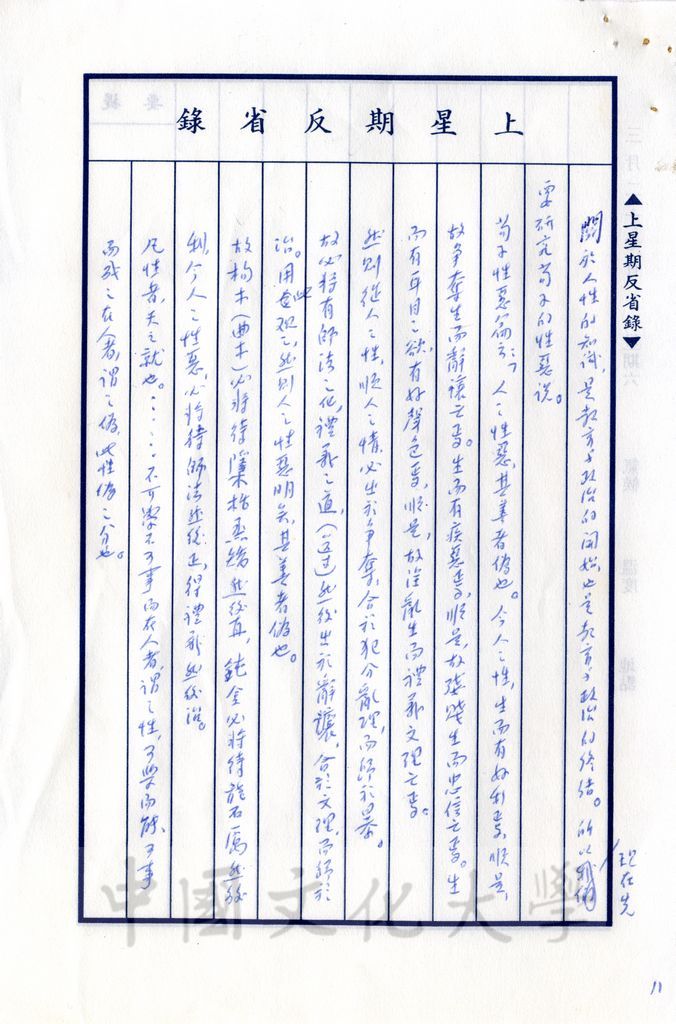 上星期反省錄
▲上星期反省錄▼
關於人性的知識,是教育與政治的開始,也是教育與政治的終結。所以我們現在先
要研究荀子的性惡說。
荀子性惡篇云:「人之性惡,其善者偽也。今人之性,生而有好利焉,順是,
故爭奪生而辭讓亡焉。生而有疾惡焉,順是,故殘賊生而忠信亡焉。生
而有耳目之欲,有好聲色焉,順是,故淫亂生而禮義文理亡焉。
然則從人之性,順人之情,必出於爭奪,合於犯分亂理,而歸於暴。
故必將有師法之化,禮義之道,(這道)然後出於辭讓,合於文理,而歸於
治。用此觀之,然則人之性惡明矣,其善者偽也。
故枸木(曲木)必將待檃栝烝矯然後直,鈍金必將待礱厲然後
利,今人之性惡,必將待師法然後正,得禮義然後治。
凡性者,天之就也。……不可學不可事而在人者,謂之性,可學而能,可事
而成之在人者,謂之偽,此性偽之分也。
中國文化大學
11